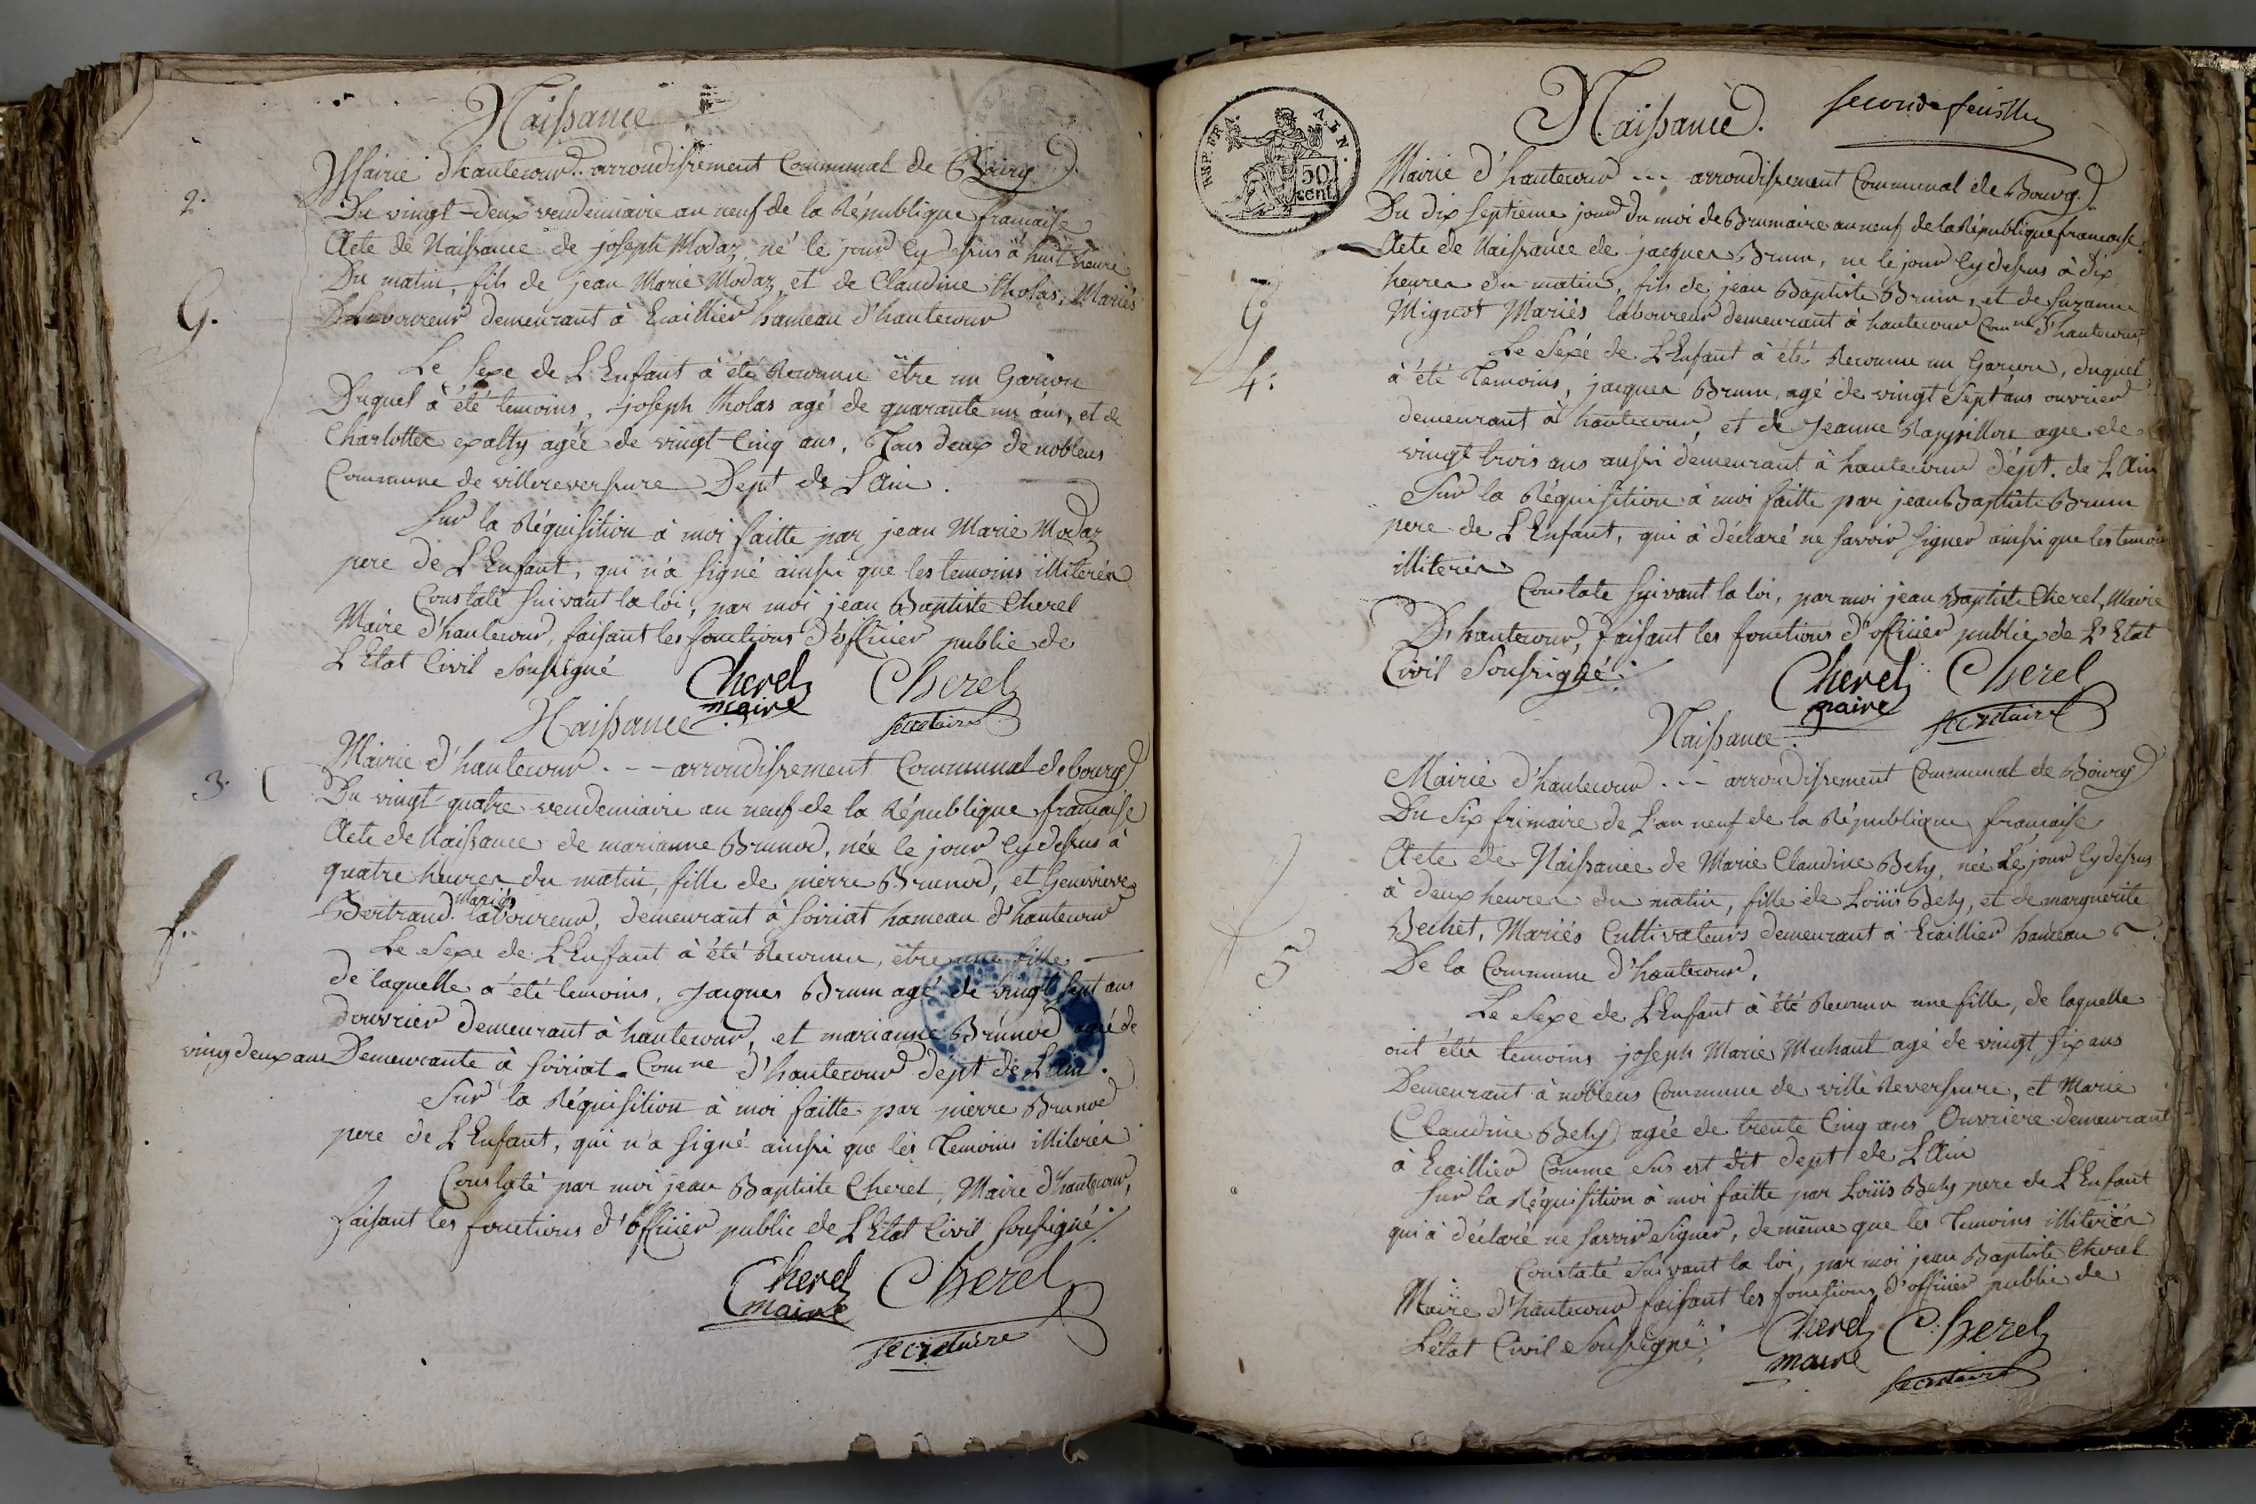 Naissance
2.
Mairie d'hautecour. arrondissement Communal de Bourg
Du vingt-deux vendemiaire an neuf de la République francaise
Acte de Naissance de joseph Modaz, né le jour cy dessus à huit heure
G.
Du matin, fils de jean Marie Modaz, et de Claudine tholas, Mariés
Laboureur demeurant à Ecaillier hameau d'hautecour
Le sexe de L'Enfant à été Reconnu être un Garcon
Duquel à été temoins, joseph tholas agé de quarante un ans, et de
Charlotte agée de vingt-Cinq ans, Tous deux de noblens
Commune de villereversure Dept de L'Ain.
Sur la Réquisition à moi faitte par jean Marie Modaz
pere de L'Enfant, qui n'a signé ainsi que les temoins illiterés
Constaté suivant la loi, par moi jean Baptiste Cherel
Maire d'hautecour, faisant les fonctions d'officier public de
L'Etat Civil Soussigné
Cherel Cherel
maire secretaire
Naissance.
3.
Mairie d'hautecour . - - arrondissement Communal de bourg
Du vingt-quatre vendemiaire an neuf de la République francaise
Acte de Naissance de marianne Brunod, née le jour cy dessus à
quatre heures du matin, fille de pierre Brunod, et Genevieve
Mariés
Bertrand laboureur, demeurant à soiriat hameau d'hautecour
f..
Le sexe de L'Enfant à été Reconnu, être une fille
de laquelle à été temoins, Jacques Brun agé de vingt sept ans
d'ouvrier demeurant à hautecour, et marianne Brunod agé de
ving deux ans Demeurante à soiriat Comne d'hautecour dept de L'Ain.
Sur la Réquisition à moi faitte par pierre Brunod
pere de L'Enfant, qui n'a signé ainsi que les Temoins illiterés
Constaté par moi jean Baptiste Cherel, Maire d'hautecour,
faisant les fonctions d'officier public de L'Etat Civil soussigné
Cherel Cherel
maire secretaire
REP. FRA. AIN.
50
cent.
Naissance.
seconde feuille
Mairie d'hautecour - - - arrondissement Communal de Bourg
Du dix septieme jour du moi de Brumaire an neuf de la République francaise
Acte de Naissance de jacques Brun, né le jour cy dessus à dix
heures du matin, fils de jean Baptiste Brun, et de suzanne
G
Mignot Mariés laboureur demeurant à hautecour Comne d'hautecour
Le sexe de L'Enfant à été Reconnu un Garcon, duquel
4:
à été Temoins, jacques Brun, agé de vingt sept ans ouvrier
demeurant à hautecour, et de Jeanne Rappillon agée de
vingt trois ans aussi demeurant à hautecour dépt. de L'Ain
Sur la Réquisition à moi faitte par jean Baptiste Brun
pere de L'Enfant, qui à déclaré ne savoir signer ainsi que les temoins
illiterés
Constate suivant la loi, par moi jean Baptiste Cherel, Maire
D'hautecour, faisant les fonctions d'officier public de L'Etat
Civil Soussigné
Cherel Cherel
maire secretaire
Naissance.
Mairie d'hautecour . - - arrondissement Communal de Bourg
Du six frimaire de L'an neuf de la République francaise
Acte de Naissance de Marie Claudine Bety, née Le jour cy dessus
à deux heures du matin, fille de Loüis Bety, et de marguerite
Bechet, Mariés Cultivateurs demeurant à Ecaillier hameau
5
De la Commune d'hautecour.
Le sexe de L'Enfant à été Reconnu une fille, de laquelle
ont étés temoins joseph Marie Michaut agé de vingt six ans
Demeurant à noblens Commune de ville Reversure, et Marie
Claudine Bety agée de trente Cinq ans Ouvriere demeurant
à Ecaillier Comme sus est dit dept de L'Ain
Sur la Réquisition à moi faitte par Loüis Bety pere de L'Enfant
qui à déclaré ne savoir signer, de même que les Temoins illiterés
Constaté suivant la loi, par moi jean Baptiste Cherel
Maire d'hautecour faisant les fonctions d'officier public de
L'état Civil Soussigné
Cherel Cherel
maire secretaire